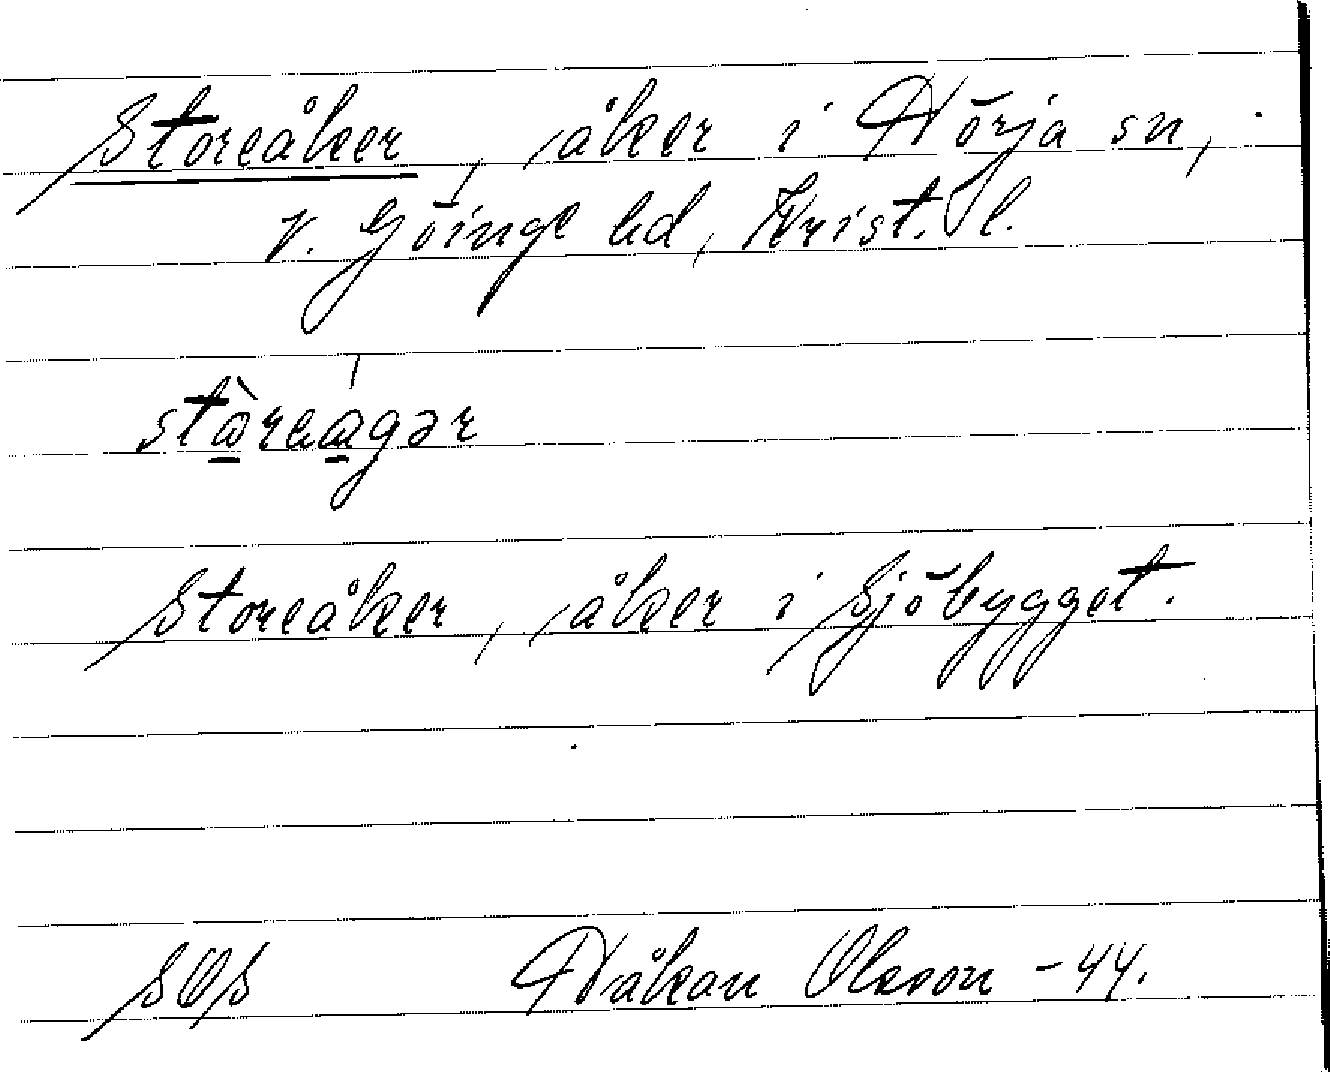 Storeåker, åker i Hörja sn,
V. Göinge hd, Krist. l.
Storeåker, åker i Sjöbygget.
SOS Håkan Olsson -44.